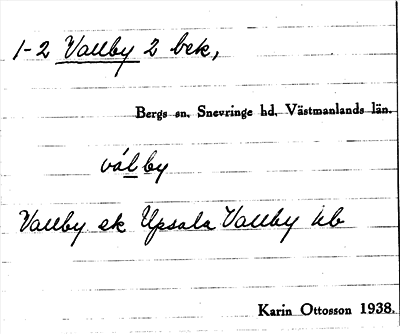 1-2 Vallby 2 bek,
Bergs sn. Snevringe hd. Västmanlands län.
vál by
Vallby ek Upsala Vallby hb
Karin Ottosson 1938.